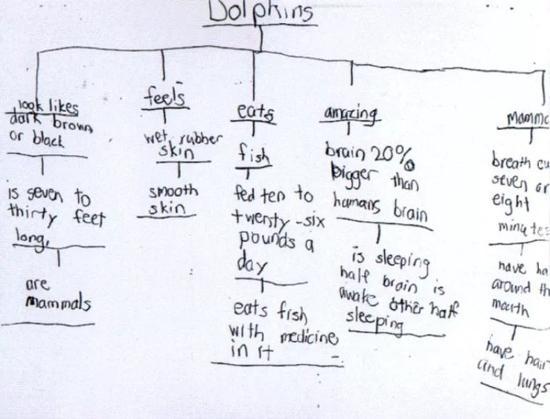 Dolphins
look likes
dark brown
or black
is seven to
thirty feet
long,
are
mammals
feels
wet, rubber
skin
smooth
skin
eats
fish
fed ten to
twenty-six
pounds a
day
eats fish
with medicine
in it
amazing
brain 20%
bigger than
humans brain
is sleeping
half brain is
awake other half
sleeping
breath
seven or
eight
minutes
have
around
mouth
have hair
and lungs